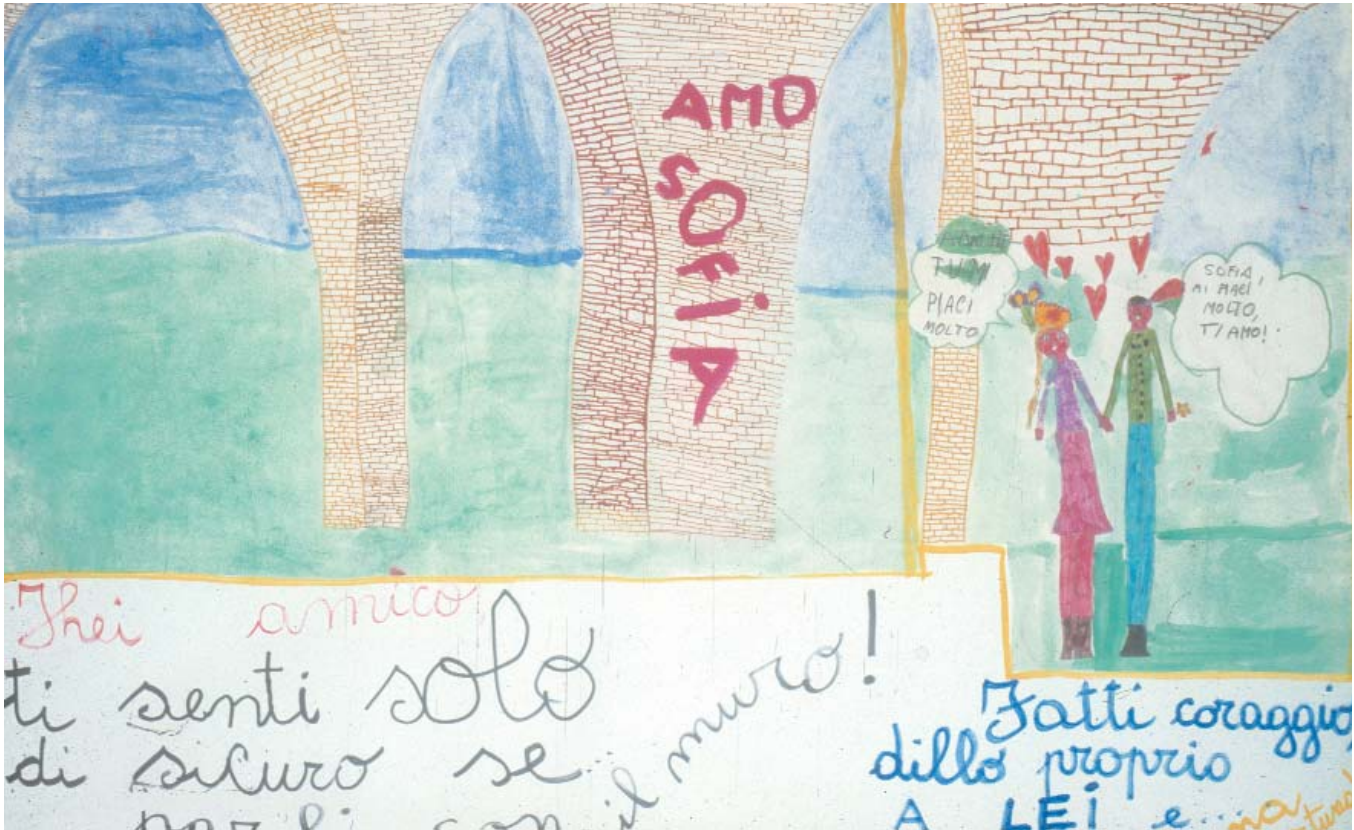 AMO
SOFIA
TU MI
PIACI
MOLTO
SOFIA,
MI PIACI
MOLTO,
TI AMO!
Ehei amico,
ti senti solo
di sicuro se
parli con il muro!
Fatti coraggio,
dillo proprio
A LEI e...